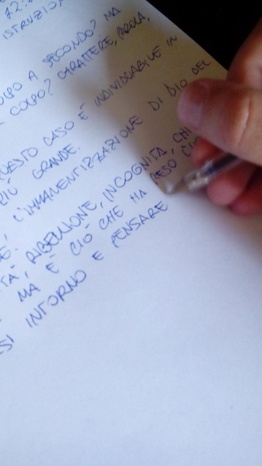 ISTRUZIO
A SECONDO? MA
COLPO? CARATTERE, PAROLA,
QUESTO CASO È INDIVIDUABILE IN
GRANDE.
L'IMMANENTIZZAZIONE DI DIO DEL
RIBELLIONE, INCOGNITA, CHI
MA È CIÒ CHE HA RESO
SI INTORNO E PENSARE